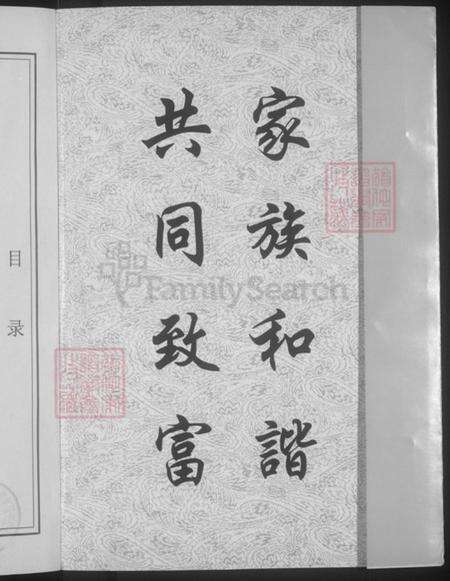 家族和諧
共同致富
目录
FamilySearch